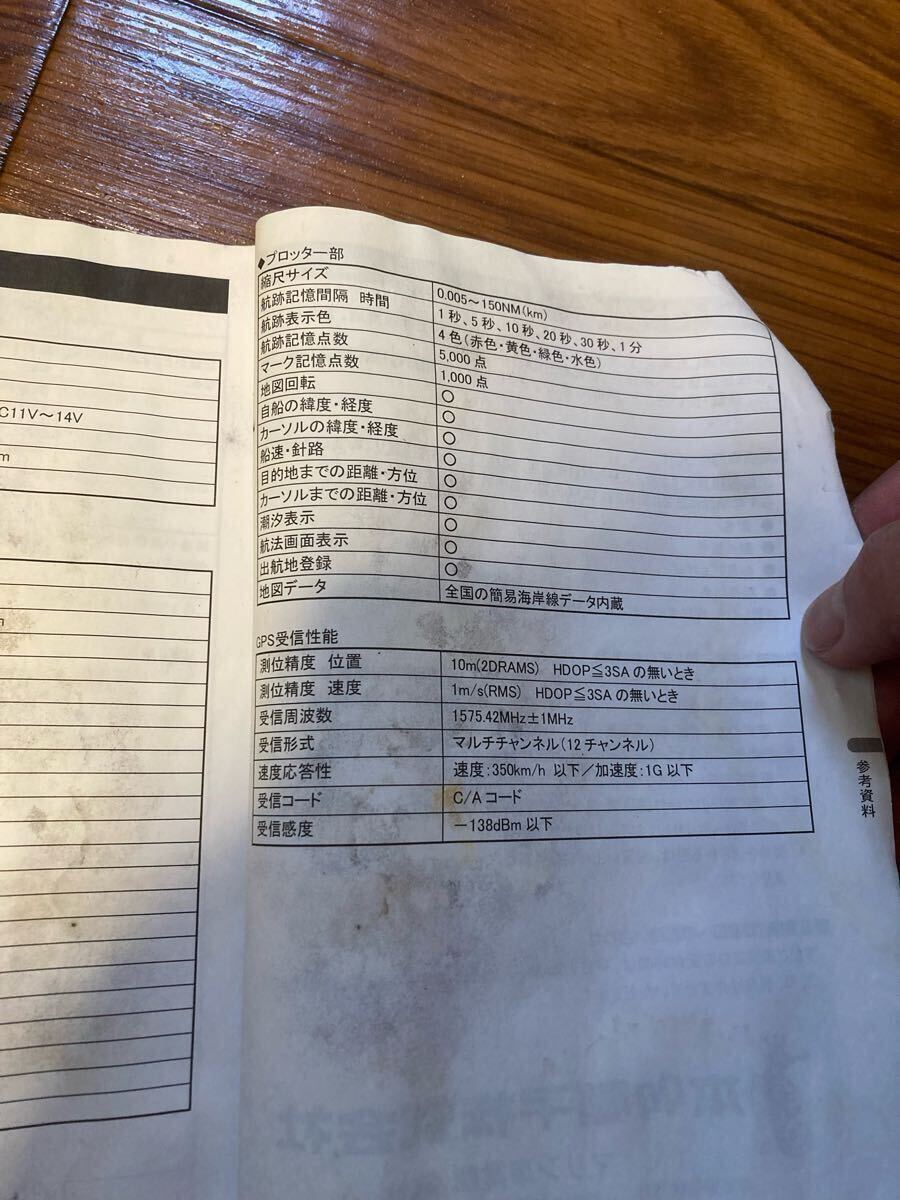 C11V～14V
m
◆プロッター部
縮尺サイズ 0.005～150NM(km)
航跡記憶間隔 時間 1秒、5秒、10秒、20秒、30秒、1分
航跡表示色 4色(赤色・黄色・緑色・水色)
航跡記憶点数 5,000点
マーク記憶点数 1,000点
地図回転 ○
自船の緯度・経度 ○
カーソルの緯度・経度 ○
船速・針路 ○
目的地までの距離・方位 ○
カーソルまでの距離・方位 ○
潮汐表示 ○
航法画面表示 ○
出航地登録 ○
地図データ 全国の簡易海岸線データ内蔵
GPS受信性能
測位精度 位置 10m(2DRAMS) HDOP≦3SAの無いとき
測位精度 速度 1m/s(RMS) HDOP≦3SAの無いとき
受信周波数 1575.42MHz±1MHz
受信形式 マルチチャンネル(12チャンネル)
速度応答性 速度:350km/h 以下/加速度:1G 以下
受信コード C/Aコード
受信感度 －138dBm以下
参考資料